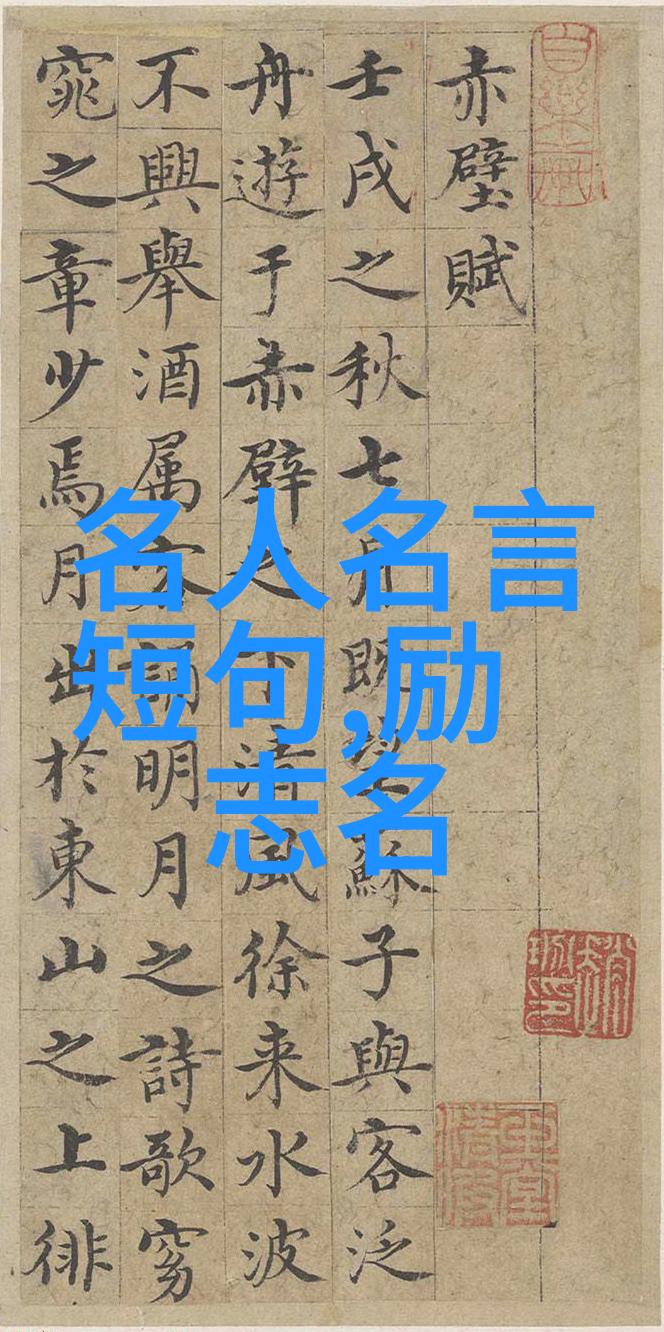 赤壁賦
壬戌之秋七月既望蘇子與客泛
舟遊于赤壁之下清風徐来水波
不興舉酒属客誦明月之詩歌窈
窕之章少焉月出於東山之上徘
名人名言
短句,励
志名